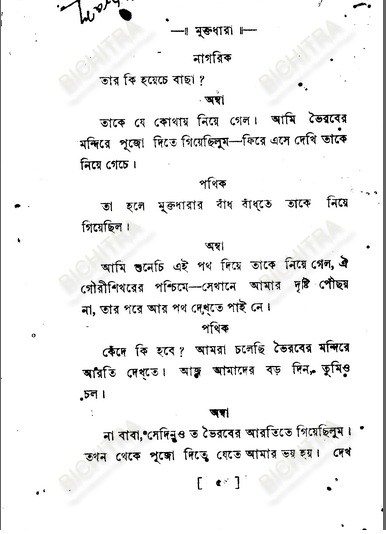 মুক্তধারা
নাগরিক
তার কি হয়েচে বাছা ?
অম্বা
তাকে যে কোথায় নিয়ে গেল। আমি ভৈরবের
মন্দিরে পূজো দিতে গিয়েছিলুম—ফিরে এসে দেখি তাকে
নিয়ে গেচে।
পথিক
তা হলে মুক্তধারার বাঁধ বাঁধ্‌তে তাকে নিয়ে
গিয়েছিল।
অম্বা
আমি শুনেচি এই পথ দিয়ে তাকে নিয়ে গেল, ঐ
গৌরীশিখরের পশ্চিমে—সেখানে আমার দৃষ্টি পৌঁছয়
না, তার পরে আর পথ দেখ্‌তে পাই নে।
পথিক
কেঁদে কি হবে ? আমরা চলেছি ভৈরবের মন্দিরে
আরতি দেখ্‌তে। আজ আমাদের বড় দিন, তুমিও
চল।
অম্বা
না বাবা, সেদিনও ত ভৈরবের আরতিতে গিয়েছিলুম।
তখন থেকে পূজো দিতে যেতে আমার ভয় হয়। দেখ
[ ৫ ]
BICHITRA